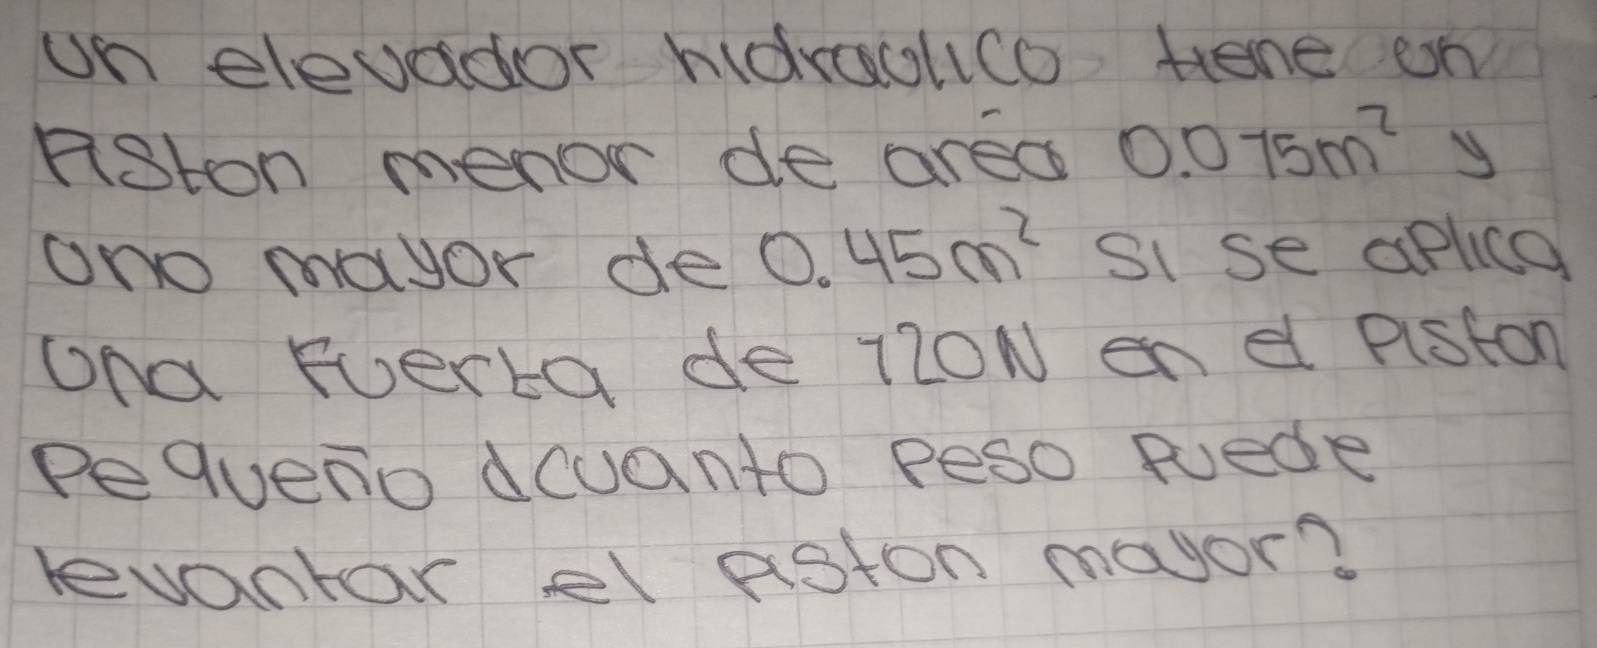 un elevador hidraulico tiene un
Piston menor de área 0.075m² y
uno mayor de 0.45m² si se aplica
una fuerza de 120N en el piston
Pequeño ¿cuanto peso puede
levantar el piston mayor?